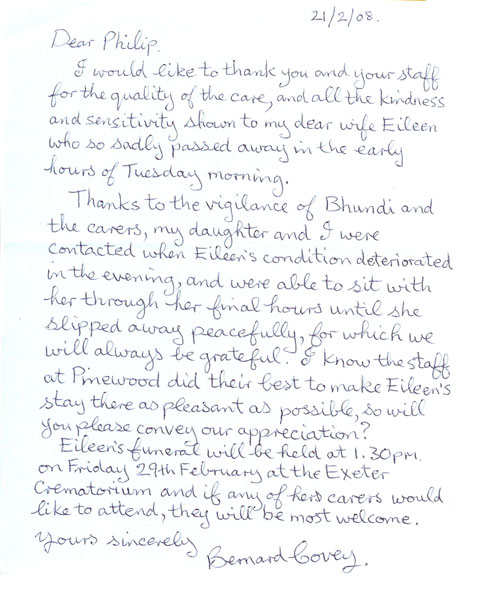 21/2/08.
Dear Philip.
I would like to thank you and your staff
for the quality of the care, and all the kindness
and sensitivity shown to my dear wife Eileen
who so sadly passed away in the early
hours of Tuesday morning.
Thanks to the vigilance of Bhundi and
the carers, my daughter and I were
contacted when Eileen's condition deteriorated
in the evening, and were able to sit with
her through her final hours until she
slipped away peacefully, for which we
will always be grateful. I know the staff
at Pinewood did their best to make Eileen's
stay there as pleasant as possible, so will
you please convey our appreciation?
Eileen's funeral will be held at 1.30pm.
on Friday 29th February at the Exeter
Crematorium and if any of hers carers would
like to attend, they will be most welcome.
Yours sincerely
Bernard Covey.